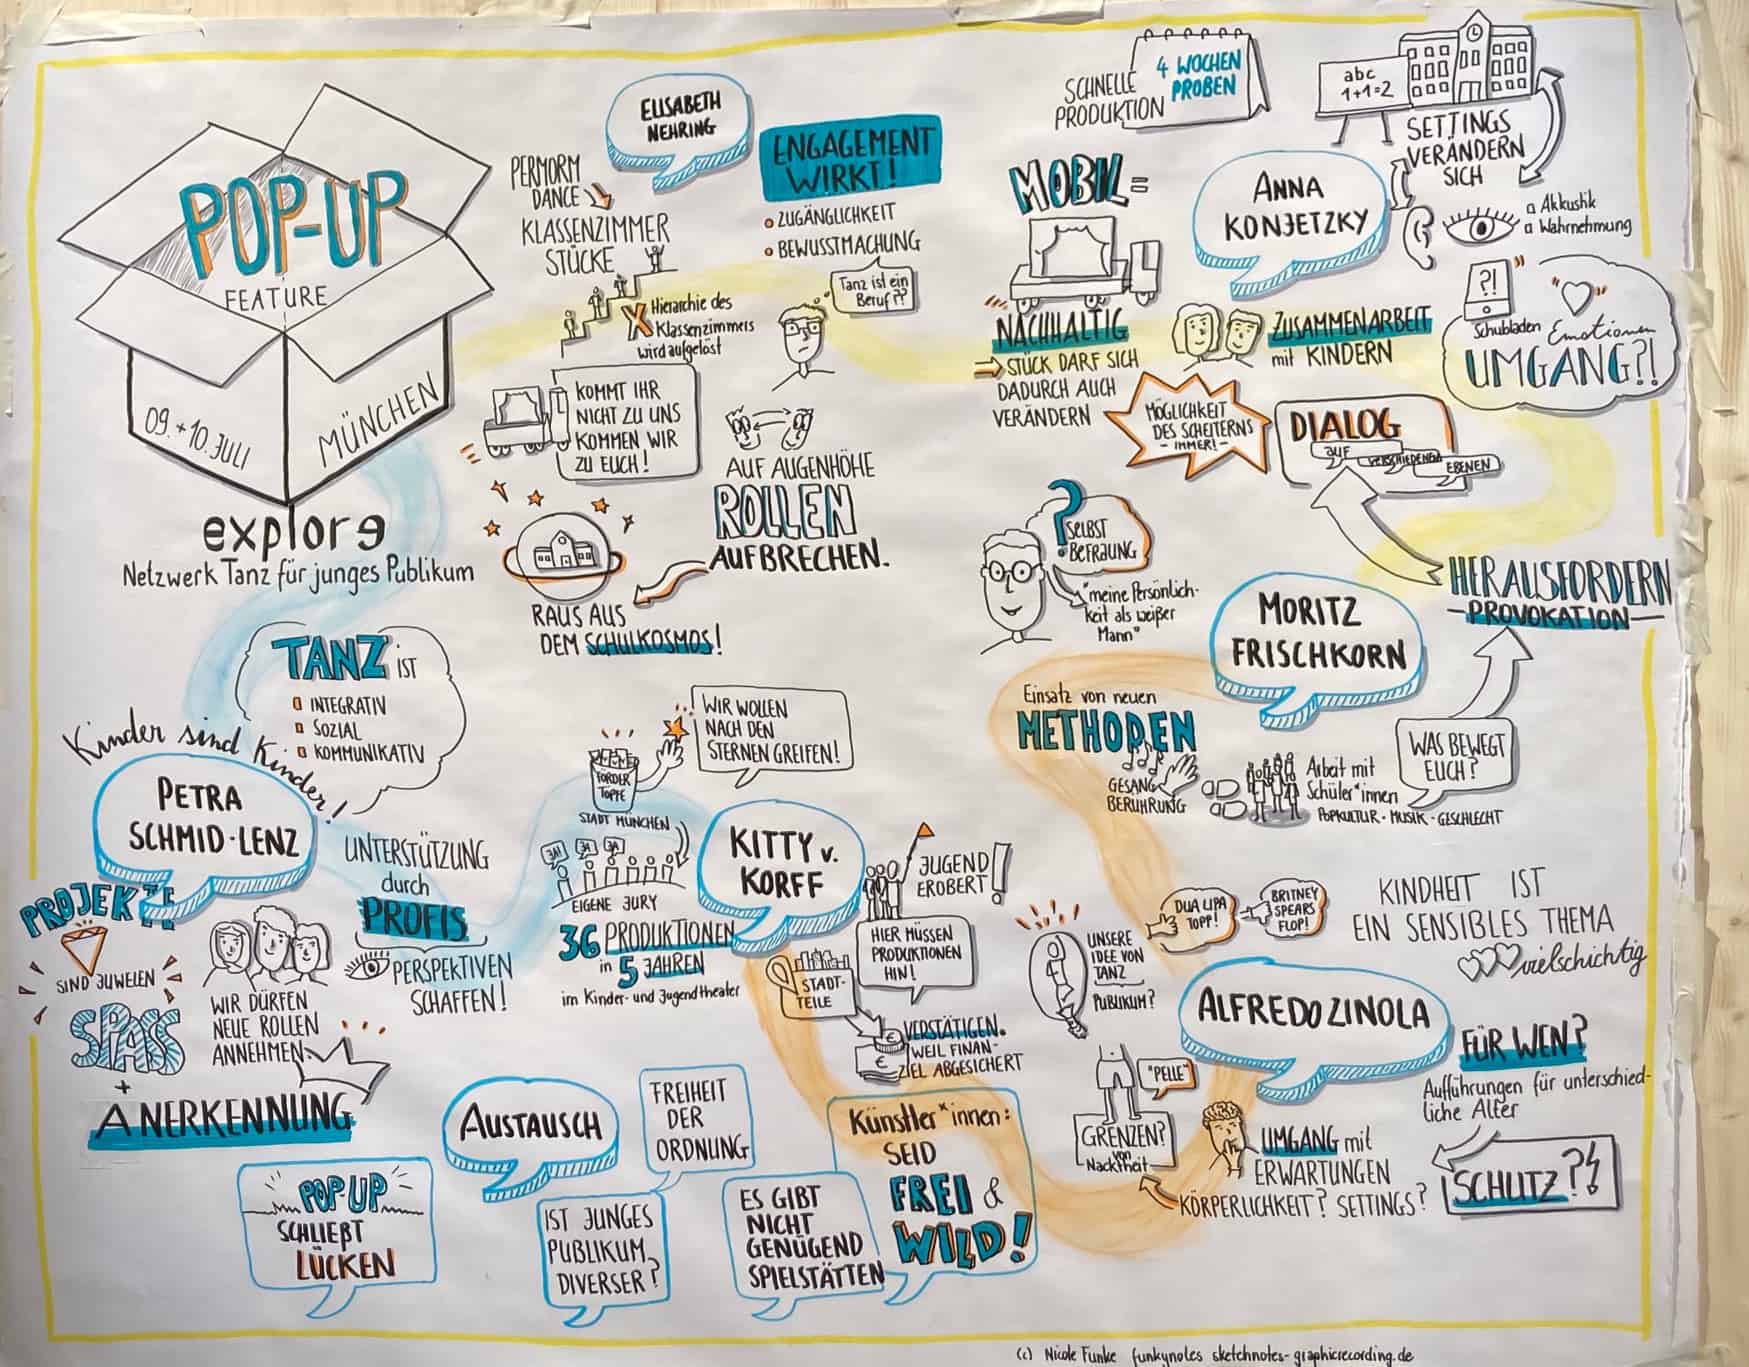 POP-UP
FEATURE
09. + 10. JULI
MÜNCHEN
explore
Netzwerk Tanz für junges Publikum
ELISABETH
NEHRING
PERMORM
DANCE
KLASSENZIMMER
STÜCKE
X Hierarchie des
Klassenzimmers
wird aufgelöst
ENGAGEMENT
WIRKT!
ZUGÄNGLICHKEIT
BEWUSSTMACHUNG
Tanz ist ein
Beruf??
KOMMT IHR
NICHT ZU UNS
KOMMEN WIR
ZU EUCH!
AUF AUGENHÖHE
ROLLEN
AUFBRECHEN.
RAUS AUS
DEM SCHULKOSMOS!
SCHNELLE
PRODUKTION
4 WOCHEN
PROBEN
abc
1+1=2
SETTINGS
VERÄNDERN
SICH
Akkustik
Wahrnehmung
ANNA
KONJETZKY
MOBIL =
NACHHALTIG
STÜCK DARF SICH
DADURCH AUCH
VERÄNDERN
ZUSAMMENARBEIT
mit KINDERN
?!
Schubladen Emotionen
UMGANG?!
MÖGLICHKEIT
DES SCHEITERNS
- IMMER! -
DIALOG
AUF VERSCHIEDENEN EBENEN
HERAUSFORDERN
- PROVOKATION -
? SELBST
BEFRAUNG
"meine Persönlich-
keit als weißer
Mann"
MORITZ
FRISCHKORN
Einsatz von neuen
METHODEN
GESANG
BERÜHRUNG
Arbeit mit
Schüler*innen
POPKULTUR · MUSIK · GESCHLECHT
WAS BEWEGT
EUCH?
TANZ IST
INTEGRATIV
SOZIAL
KOMMUNIKATIV
Kinder sind Kinder!
PETRA
SCHMID-LENZ
PROJEKTE
SIND JUWELEN
SPASS
+
ANERKENNUNG
WIR DÜRFEN
NEUE ROLLEN
ANNEHMEN
UNTERSTÜTZUNG
durch
PROFIS
PERSPEKTIVEN
SCHAFFEN!
WIR WOLLEN
NACH DEN
STERNEN GREIFEN!
FÖRDER
TÖPFE
STADT MÜNCHEN
JA! JA JA
EIGENE JURY
36 PRODUKTIONEN
in 5 JAHREN
im Kinder- und Jugendtheater
KITTY v.
KORFF
JUGEND
EROBERT!
HIER MÜSSEN
PRODUKTIONEN
HIN!
STADT-
TEILE
€
€
VERSTÄTIGEN.
WEIL FINAN-
ZIEL ABGESICHERT
DUA LIPA
TOPP!
BRITNEY
SPEARS
FLOP!
KINDHEIT IST
EIN SENSIBLES THEMA
vielschichtig
UNSERE
IDEE VON
TANZ
PUBLIKUM?
ALFREDO ZINOLA
FÜR WEN?
Aufführungen für unterschied-
liche Alter
SCHUTZ?!
"PELLE"
GRENZEN?
von
Nacktheit
UMGANG mit
ERWARTUNGEN
KÖRPERLICHKEIT? SETTINGS?
AUSTAUSCH
POP UP
SCHLIEßT
LÜCKEN
FREIHEIT
DER
ORDNUNG
IST JUNGES
PUBLIKUM
DIVERSER?
ES GIBT
NICHT
GENÜGEND
SPIELSTÄTTEN
Künstler*innen:
SEID
FREI &
WILD!
(c) Nicole Funke funkynotes sketchnotes-graphicrecording.de